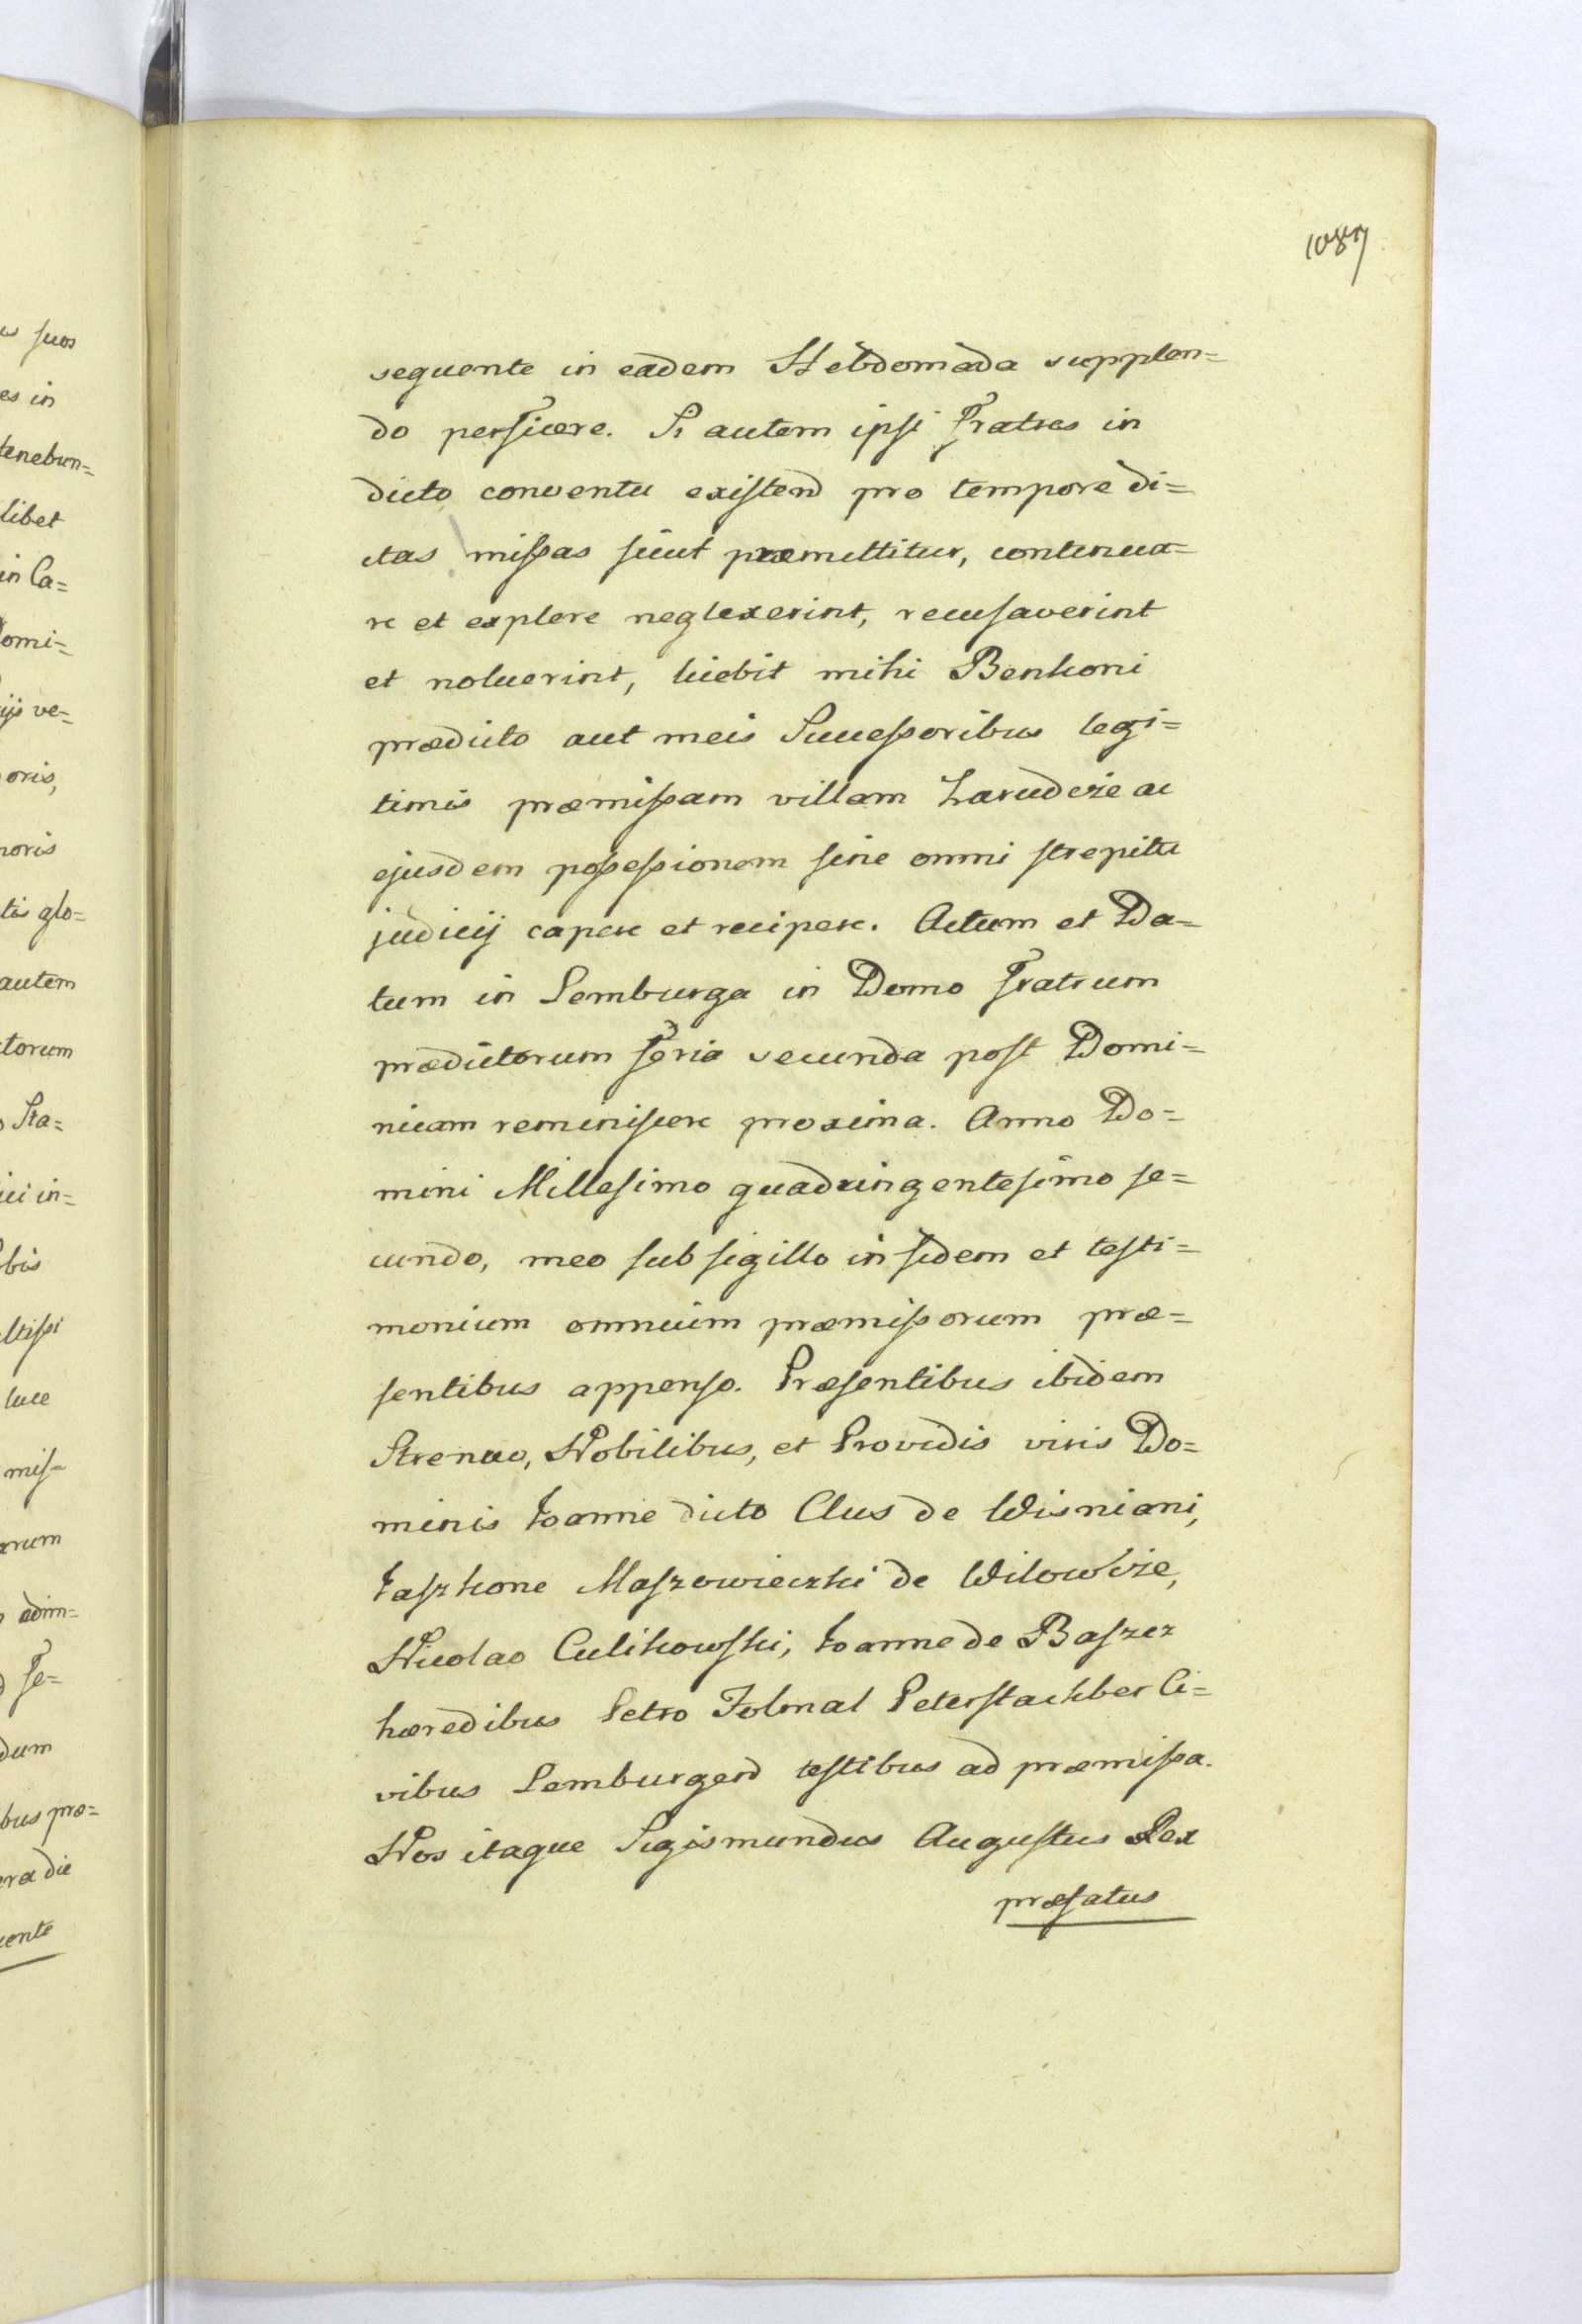 1087
sequente in eadem Hebdomada supplen=
do perficere. Si autem ipsi Fratres in
dicto conventu existend pro tempore di=
ctas missas sicut præmittitur, continua=
re et explere neglexerint, recusaverint
et noluerint, licebit mihi Benkoni
prædicto aut meis Successoribus legi=
timis præmissam villam Zarudcze ac
ejusdem possessionem sine omni strepitu
judicij capere et recipere. Actum et Da=
tum in Lemburga in Domo Fratrum
prædictorum feria secunda post Domi=
nicam reminiscere proxima. Anno Do=
mini Millesimo quadringentesimo se=
cundo, meo sub sigillo in fidem et testi=
monium omnium præmissorum præ=
sentibus appenso. Præsentibus ibidem
Strenuo, Nobilibus, et Providis viris Do=
minis Joanne dicto Clus de Wisniani,
Jaszkone Maszowieczki de Wilowcze,
Nicolao Culikowski, Joanne de Baszez
hæredibus Petro Folmal Peterstackber Ci=
vibus Lemburgend testibus ad præmissa.
Nos itaque Sigismundus Augustus Rex
præfatus
suos
es in
tenebun=
libet
in Ca=
omi=
ijs ve=
oris,
noris
tis glo=
autem
torum
Sta=
ici in=
bis
ltissi
luce
mis=
arum
adim=
fe=
dum
bus præ=
era die
uente